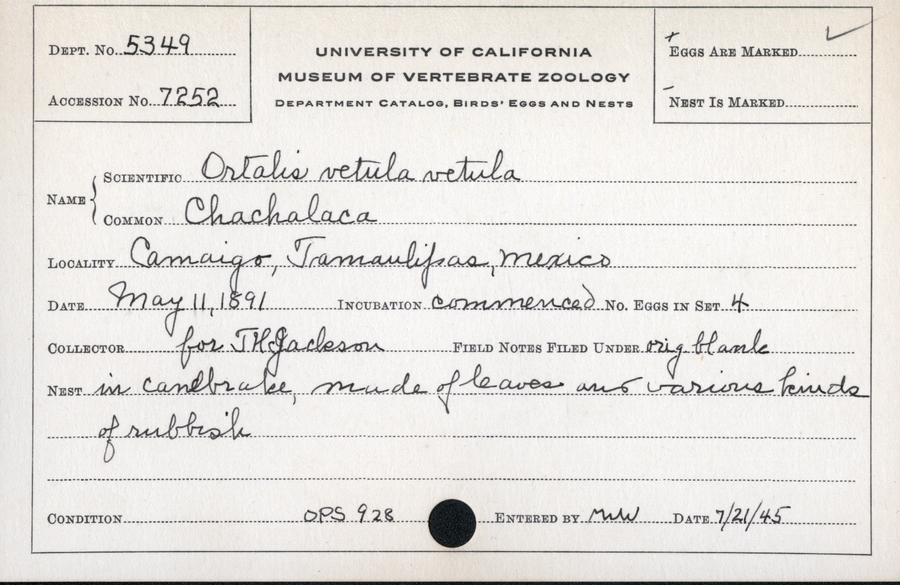 DEPT. No. 5349
ACCESSION No. 7252
UNIVERSITY OF CALIFORNIA
MUSEUM OF VERTEBRATE ZOOLOGY
DEPARTMENT CATALOG, BIRDS' EGGS AND NESTS
+ EGGS ARE MARKED ✓
- NEST IS MARKED
NAME { SCIENTIFIC Ortalis vetula vetula
COMMON Chachalaca
LOCALITY Camaigo, Tamaulipas, Mexico
DATE May 11, 1891 INCUBATION commenced No. EGGS IN SET 4
COLLECTOR for TH Jackson FIELD NOTES FILED UNDER orig blank
NEST in canebrake, made of leaves and various kinds
of rubbish
CONDITION OPS 928 ENTERED BY MWW DATE 7/21/45